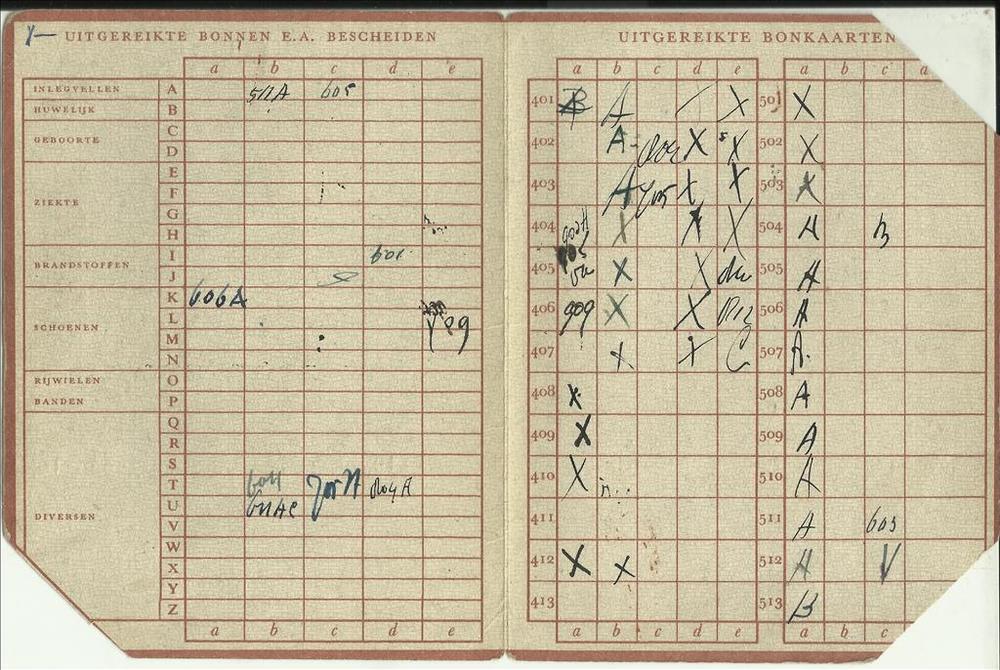 UITGEREIKTE BONNEN E.A. BESCHEIDEN
a b c d e
INLEGVELLEN A 511A 605
HUWELIJK B
C
GEBOORTE D
E
ZIEKTE F
G
H
BRANDSTOFFEN I 601
J
K 606A
SCHOENEN L
M
N
RIJWIELEN O
BANDEN P
Q
R
S
T
DIVERSEN U
V
W
X
Y
Z
a b c d e
UITGEREIKTE BONKAARTEN
a b c d e a b c d
401 B A X 501 X
402 A X X 502 X
403 A 705 X X 503 X
404 X X X 504 A B
405 X X 505 A
406 909 X X 506 A
407 X X 507 A
408 X 508 A
409 X 509 A
410 X 510 A
411 511 A 603
412 X X 512 A V
413 513 B
a b c d e a b c